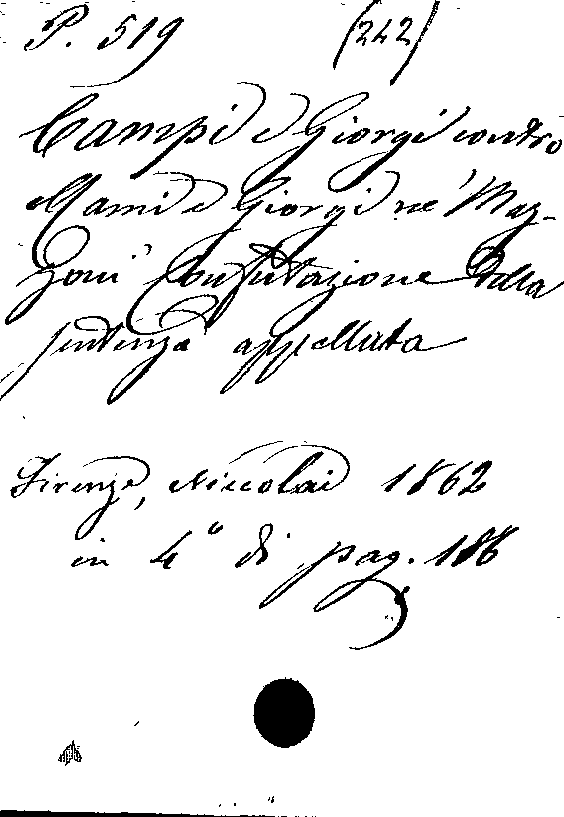 P. 519 (242)
Campi e Giorgi contro
Mami e Giorgi ne' Maz-
zoni Confutazione della
sentenza appellata
Firenze, Niccolai 1862
in 4° di pag. 186